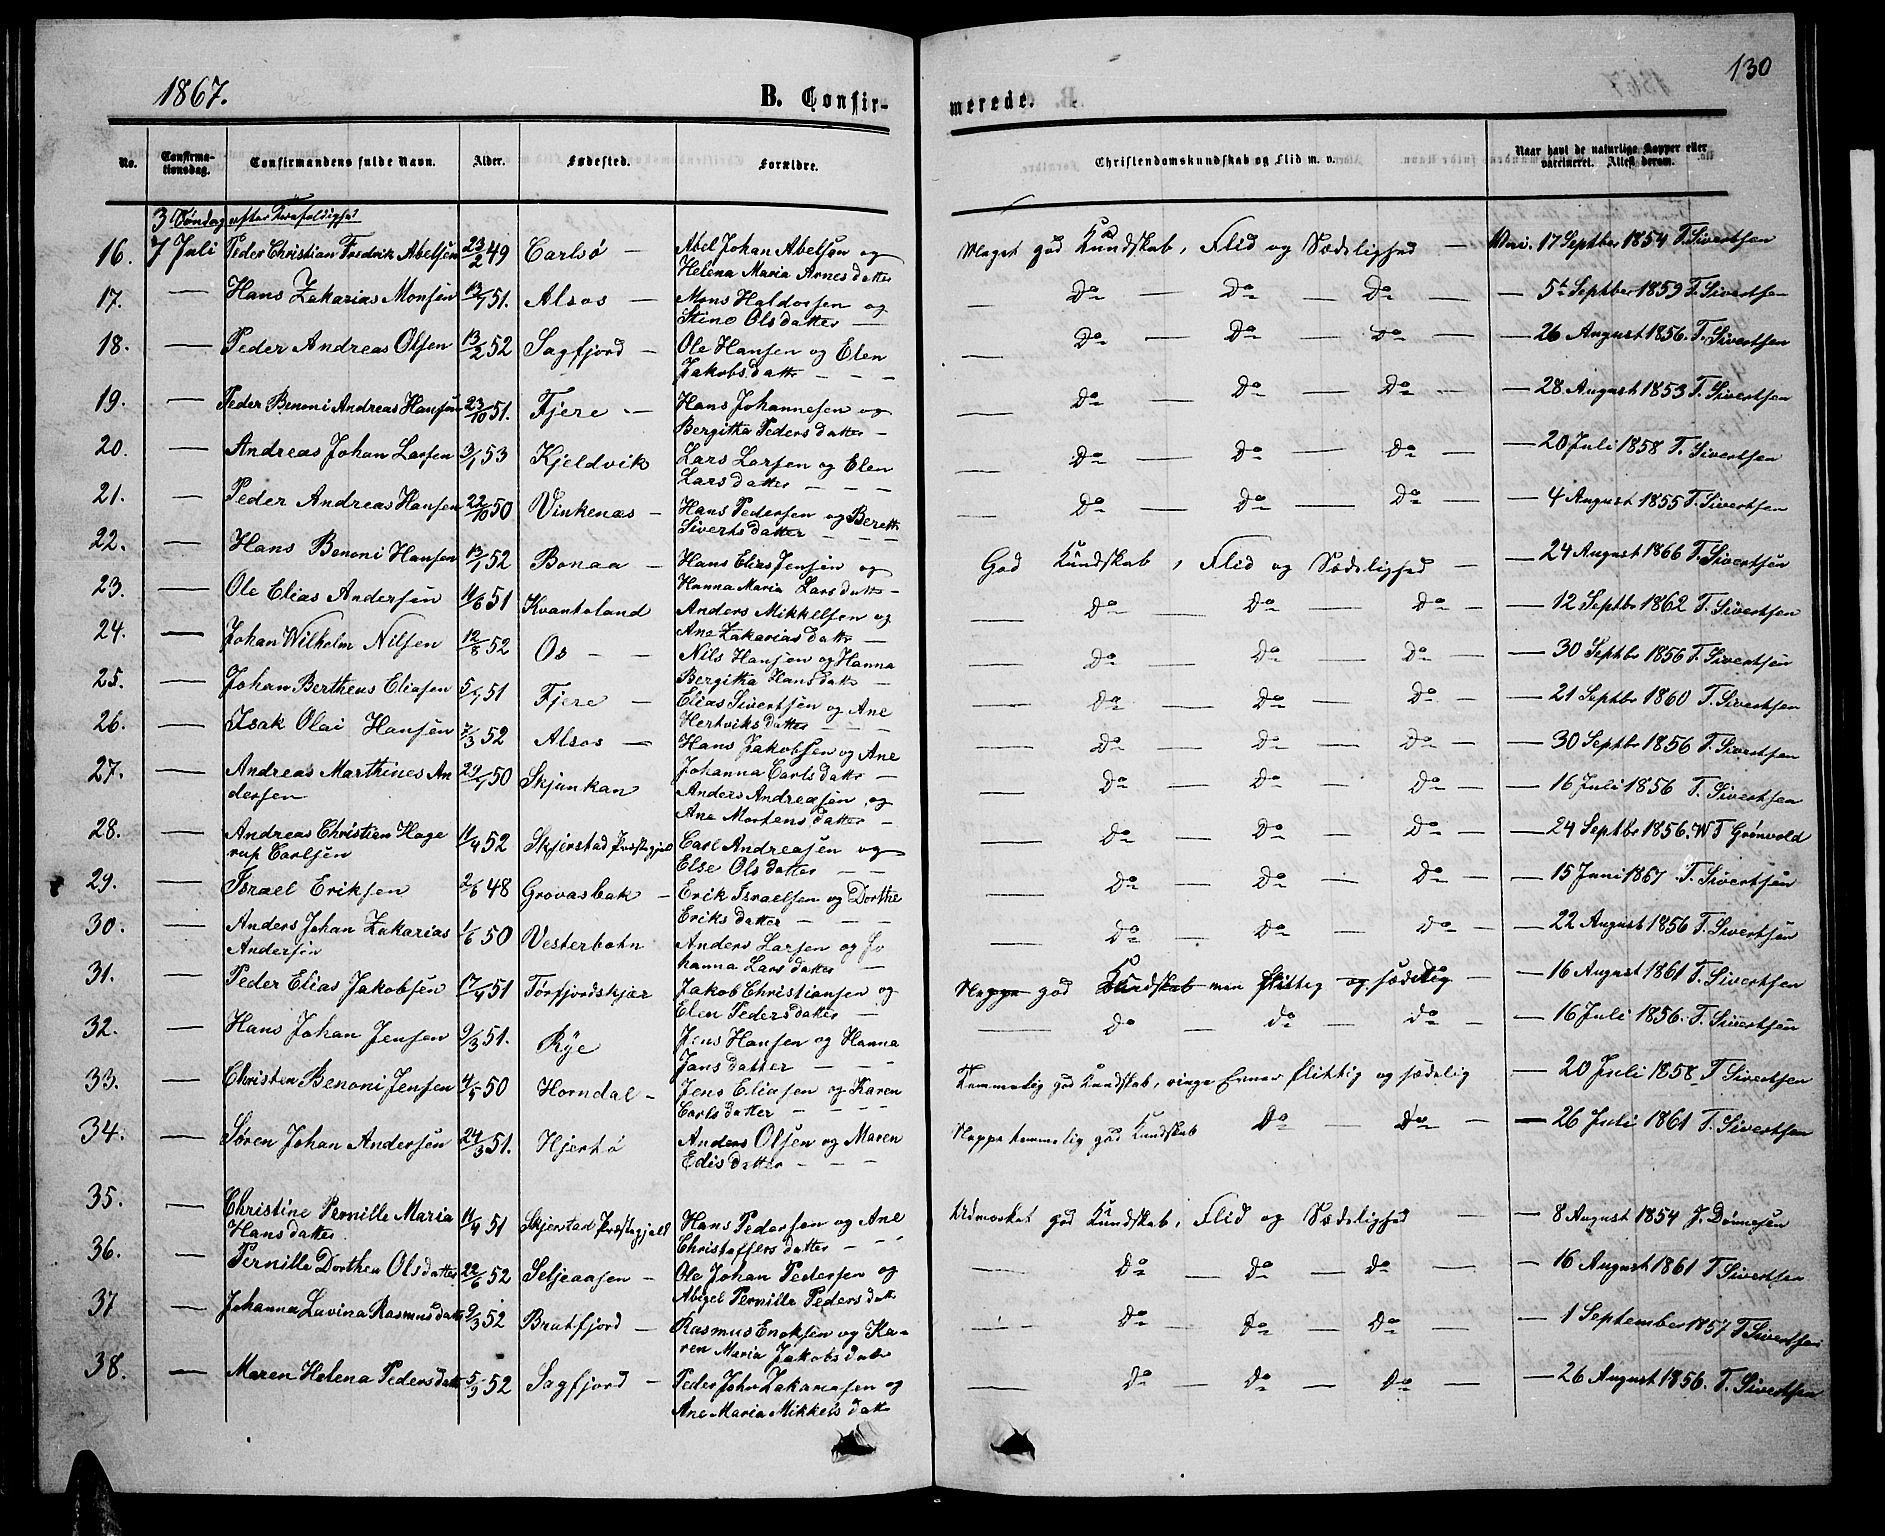 1867.
B. Confir-
merede.
130
No.
Confirma-
tionsdag.
Confirmandens fulde Navn.
Alder.
Fødested.
Forældre.
Christendomskundskab og Flid m. v.
Naar havt de naturlige Kopper eller
vaccineret. Attest derom.
3 Søndag efter Trefoldighed
16. 7 Juli Peder Christian Fredrik Abelsen 23/2 49 Carlsø — Abel Johan Abelsen og
Helena Maria Arnesdatter
Meget god Kundskab, Flid og Sædelighed — 17 Septber 1854 T. Sivertsen
17. — Hans Zakarias Monsen 13/7 51. Alsos — Mons Haldorsen og
Stine Olsdatter —
— Do — Do — Do — — 5te Septber 1859 T. Sivertsen
18. — Peder Andreas Olsen 13/2 52 Sagfjord — Ole Hansen og Elen
Jakobsdattr — — —
— Do — Do — Do — 26 August 1856. T. Sivertsen
19. — Peder Benoni Andreas Hansen 23/10 51. Fjere — Hans Johannesen og
Bergitha Pedersdatter —
— Do — Do — Do — — 28 August 1853 T. Sivertsen
20. — Andreas Johan Larsen 3/1 53 Kjeldvik Lars Larsen og Elen
Larsdatter — — —
— Do — Do — Do — 20 Juli 1858 T. Sivertsen
21. — Peder Andreas Hansen 22/10 50 Vinkenæs — Hans Pedersen og Berett
Sivertsdatter — — —
— Do — Do — Do — — 4 August 1855 T. Sivertsen
22. — Hans Benoni Hansen 13/1 52 Bonaa — Hans Elias Jensen og
Hanna Maria Larsdattr —
God Kundskab, Flid og Sædelighed — — 24 August 1866 T. Sivertsen
23. — Ole Elias Andersen 11/6 51 Kvantoland Anders Mikkelsen og
Ane Zakariasdattr —
— Do — Do — Do — — 12 Septbr 1862 T. Sivertsen
24. — Johan Wilhelm Nilsen 12/8 52 Os — — Nils Hansen og Hanna
Bergitha Hansdattr —
— Do — Do — Do — — 30 Septbr 1856 T. Sivertsen
25. — Johan Bertheus Eliasen 5/1 51 Fjere — Elias Sivertsen og Ane
Hertviksdatter — —
— Do — Do — Do — 21 Septbr 1860 T. Sivertsen
26. — Isak Olai Hansen 7/3 52 Alsos — Hans Jakobsen og Ane
Johanna Carlsdattr —
— Do — Do — Do — — 30 Septbr 1856 T. Sivertsen
27. — Andreas Marthines An
dersen 29/7 50 Skjunkan Anders Andreasen og
Ane Mortensdatter —
— Do — Do — Do — 16 Juli 1856 T. Sivertsen
28. — Andreas Christian Hage
rup Carlsen 11/4 52 Skjerstad Præstegjeld Carl Andreasen og
Else Olsdatter — —
— Do — Do — Do — — 24 Septbr 1856. W T Grønvold
29. — Israel Eriksen 2/6 48 Grovasbak — Erik Israelsen og Dorthe
Eriksdatter — — —
— Do — Do — Do — — 15 Juni 1867 T. Sivertsen
30. — Anders Johan Zakarias
Andersen 1/6 50 Vesterbotn Anders Larsen og Jo
hanna Larsdatter —
— Do — Do — Do — — 22 August 1856 T. Sivertsen
31. — Peder Elias Jakobsen 17/4 51 Tørfjordskjær Jakob Christiansen og
Elen Pedersdatter —
Neppe god Kundskab men flittig og sædelig — 16 August 1861 T. Sivertsen
32. — Hans Johan Jensen 9/3 51. Rye Jens Hansen og Hanna
Jansdatter — — —
— Do — Do — Do — — 16 Juli 1856. T. Sivertsen
33. — Christen Benoni Jensen 4/5 50 Horndal — Jens Eliasen og Karen
Carlsdatter — — — —
Temmelig god Kundskab, ringe Evner flittig og sædelig — 20 Juli 1858 T Sivertsen
34. — Søren Johan Andersen 24/3 51. Hjertø Anders Olsen og Maren
Edisdatter — — —
Neppe temmelig god Kundskab Do — Do — — 26 Juli 1861 T. Sivertsen
35. — Christine Pernille Maria
Hansdatter 11/4 51 Skjerstad Præstegjeld Hans Pedersen og Ane
Christoffersdatter — —
Udmerket god Kundskab, Flid og Sædelighed — — 8 August 1854 J. Dønnesen
36. — Pernille Dorthea Olsdatter 22/6 52 Seljeaasen — Ole Johan Pedersen og
Abigel Pernille Pedersdattr
— Do — Do — Do — — 16 August 1861 T Sivertsen
37 — Johanna Lavina Rasmusdattr 9/3 52 Bratfjord — Rasmus Enoksen og Ka-
ren Maria Jakobsdattr
— Do — Do — Do — — 1 September 1857 T Sivertsen
38. — Maren Helena Pedersdattr 5/9 52 Sagfjord — Peder John Zakariasen og
Ane Maria Mikkelsdattr
— Do — Do — Do — — 26 August 1856. T. Sivertsen